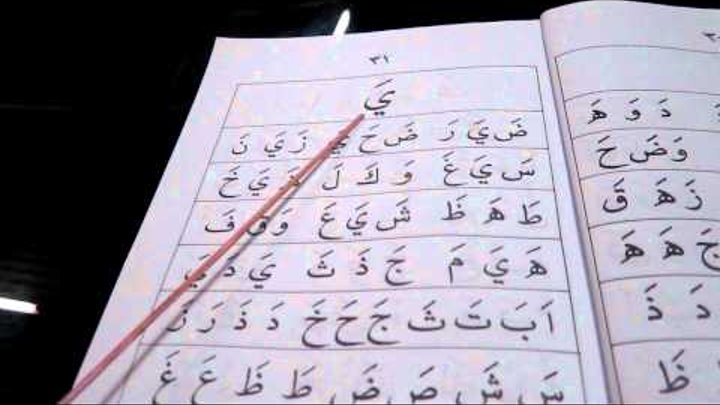 ٣١
يَ
ضَ يَ رَ ضَ حَ يَ زَ يَ نَ
سَ يَ غَ وَ كَ لَ يَ خَ
طَ هَ ظَ شَ يَ عَ وَ قَ فَ
هَ يَ مَ جَ ذَ ثَ يَ دَ يَ
اَ بَ تَ ثَ جَ حَ خَ دَ ذَ رَ زَ
سَ شَ صَ ضَ طَ ظَ عَ غَ
دَ وَ هَ
وَ ضَ حَ
زَ هَ قَ
جَ هَ هَ
ظَ